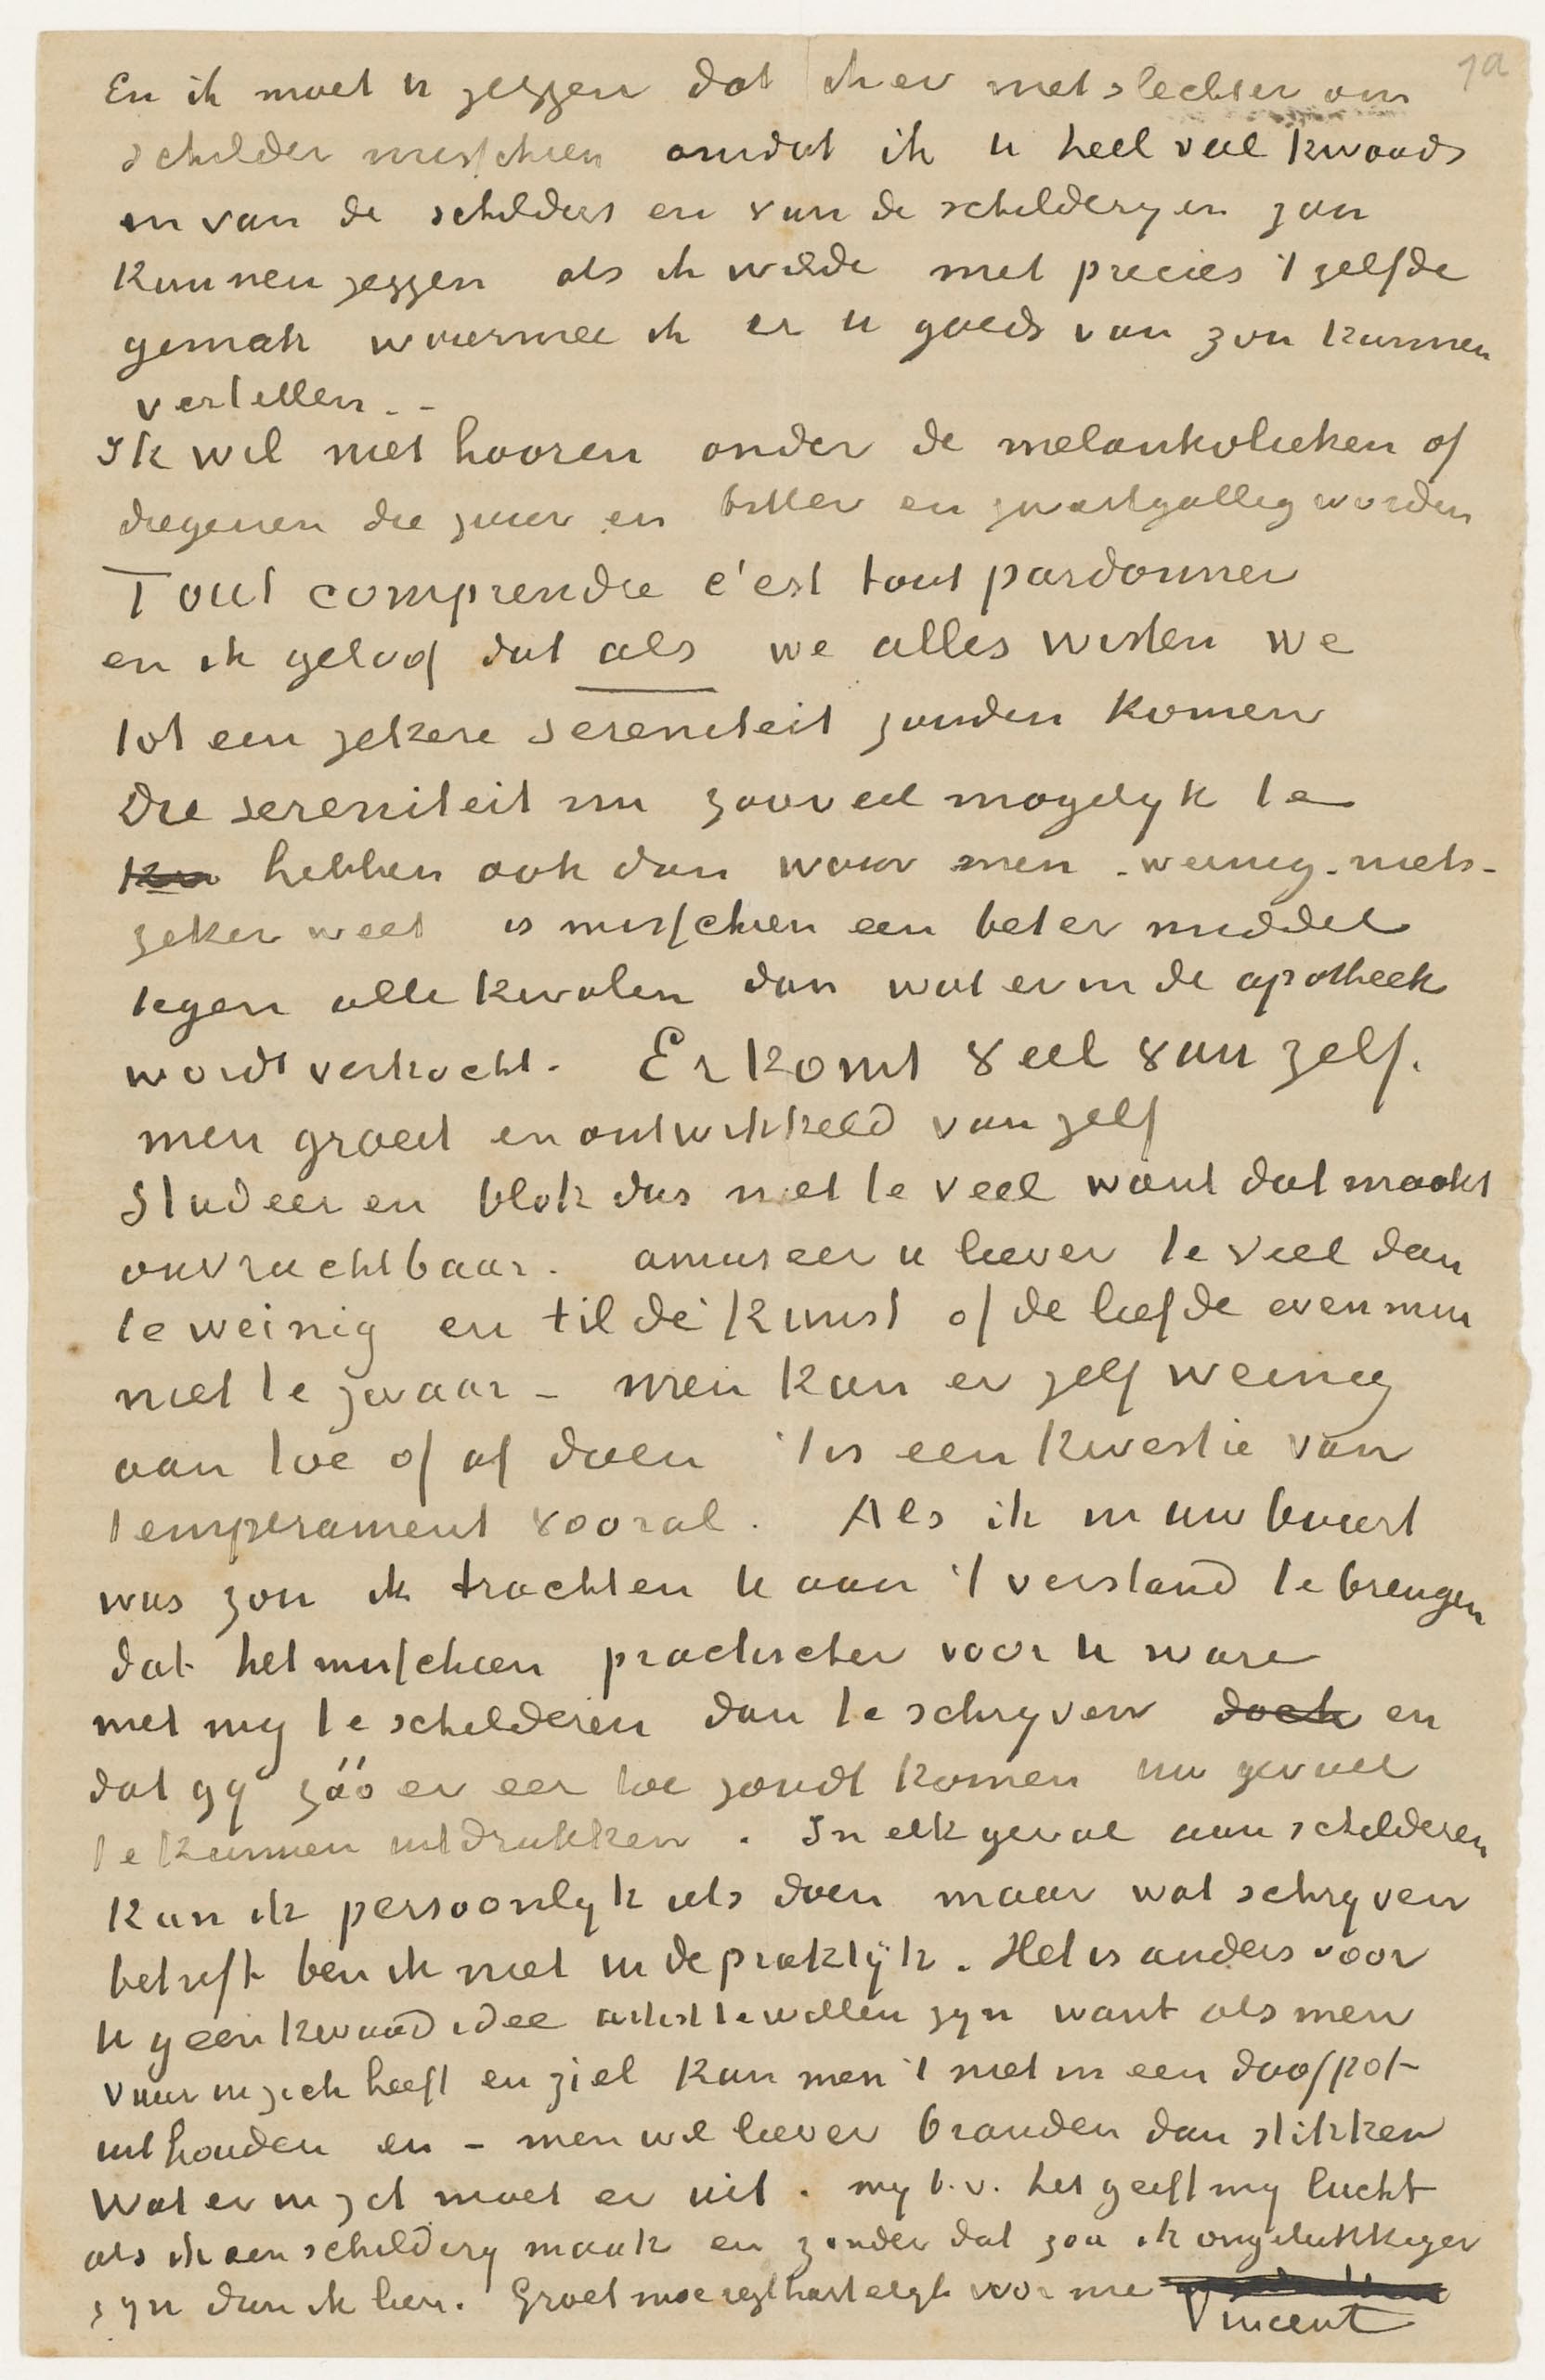 ja
En ik moet u zeggen dat ik er niet slechter om
schilder misschien omdat ik u heel veel kwaads
en van de schilders en van de schilderyen zou
kunnen zeggen als ik wilde met precies 't zelfde
gemak waarmee ik er u goeds van zou kunnen
vertellen..
Ik wil niet hooren onder de melankolieken of
diegenen die zuur en bitter en zwartgallig worden
Tout comprendre c'est tout pardonner
en ik geloof dat als we alles wisten we
tot een zekere sereniteit zouden komen
Die sereniteit nu zooveel mogelyk te
hebben ook dan waar men - weinig - niets -
zeker weet is misschien een beter middel
tegen alle kwalen dan wat er in de apotheek
wordt verkocht. Er komt veel van zelf.
men groeit en ontwikkeld van zelf
Studeer en blok dus niet te veel want dat maakt
onvruchtbaar. amuseer u liever te veel dan
te weinig en til de kunst of de liefde evenmin
niet te zwaar - men kan er zelf weinig
aan toe of af doen 't is een kwestie van
temperament vooral. Als ik in uw buurt
was zou ik trachten u aan 't verstand te brengen
dat het misschien practischer voor u ware
met my te schilderen dan te schryven doch en
dat gy zóó er eer toe zoudt komen uw gevoel
te kunnen uitdrukken. In elk geval aan schilderen
kan ik persoonlyk iets doen maar wat schryven
betreft ben ik niet in de praktijk. Het is anders voor
u geen kwaad idee artist te willen zyn want als men
vuur in zich heeft en ziel kan men 't niet in een doofpot
uithouden en - men wil liever branden dan stikken
Wat er in zit moet er uit. my b.v. het geeft my lucht
als ik een schildery maak en zonder dat zou ik ongelukkiger
zyn dan ik ben. Groet moe regt hartelyk voor me
Vincent